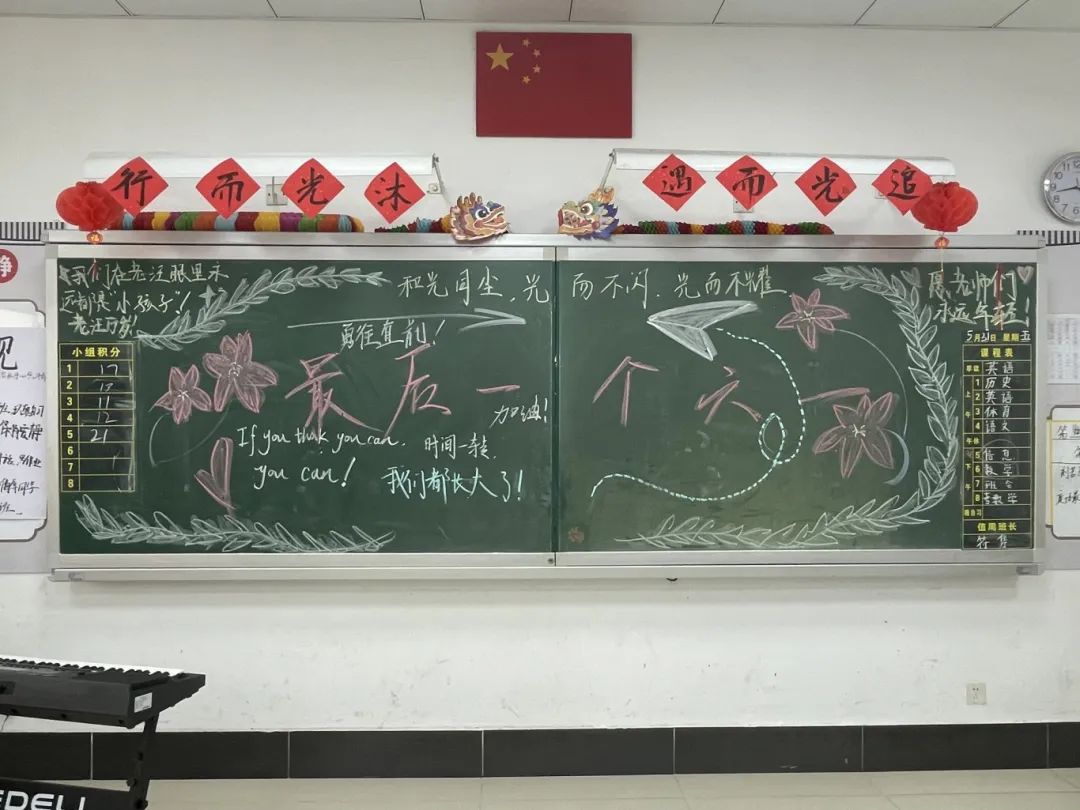 追光而遇
沐光而行
我们在老汪眼里永
远都是“小孩子”!
老汪万岁!
和光同尘,光而不闪,光而不耀
勇往直前!
最后一个六一
加油!
If you think you can,
you can!
时间一转
我们都长大了!
愿老师们
永远年轻!
小组积分
1 17
2
3 11
4 12
5 21
6
7
8
5月31日 星期五
课程表
早读 英语
上午
1 历史
2 英语
3 体育
4 语文
午休
下午
5 信息
6 数学
7 班会
8 数学
晚自习
值周班长
静